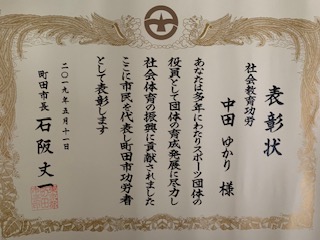 表彰状
社会教育功労
中田 ゆかり 様
あなたは多年にわたりスポーツ団体の
役員として団体の育成発展に尽力し
社会体育の振興に貢献されました
ここに市民を代表し町田市功労者
として表彰します
二〇一九年五月十一日
町田市長 石阪丈一